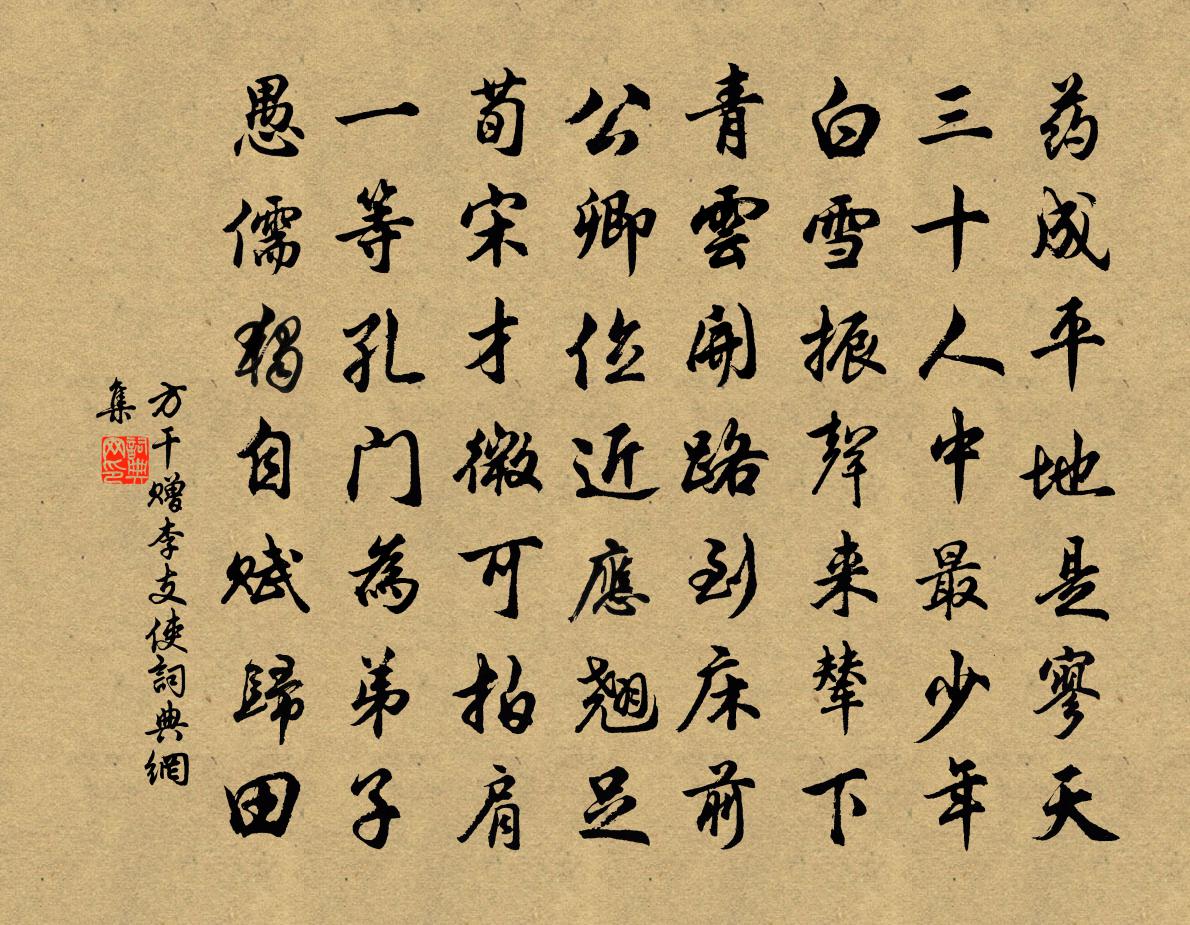 药成平地是寥天
三十人中最少年
白雪振聲来輦下
青雲開路到床前
公卿位近應翘足
荀宋才微可拍肩
一等孔门為弟子
愚儒獨自赋歸田
方干赠李支使詞典網
集
詞典
网印